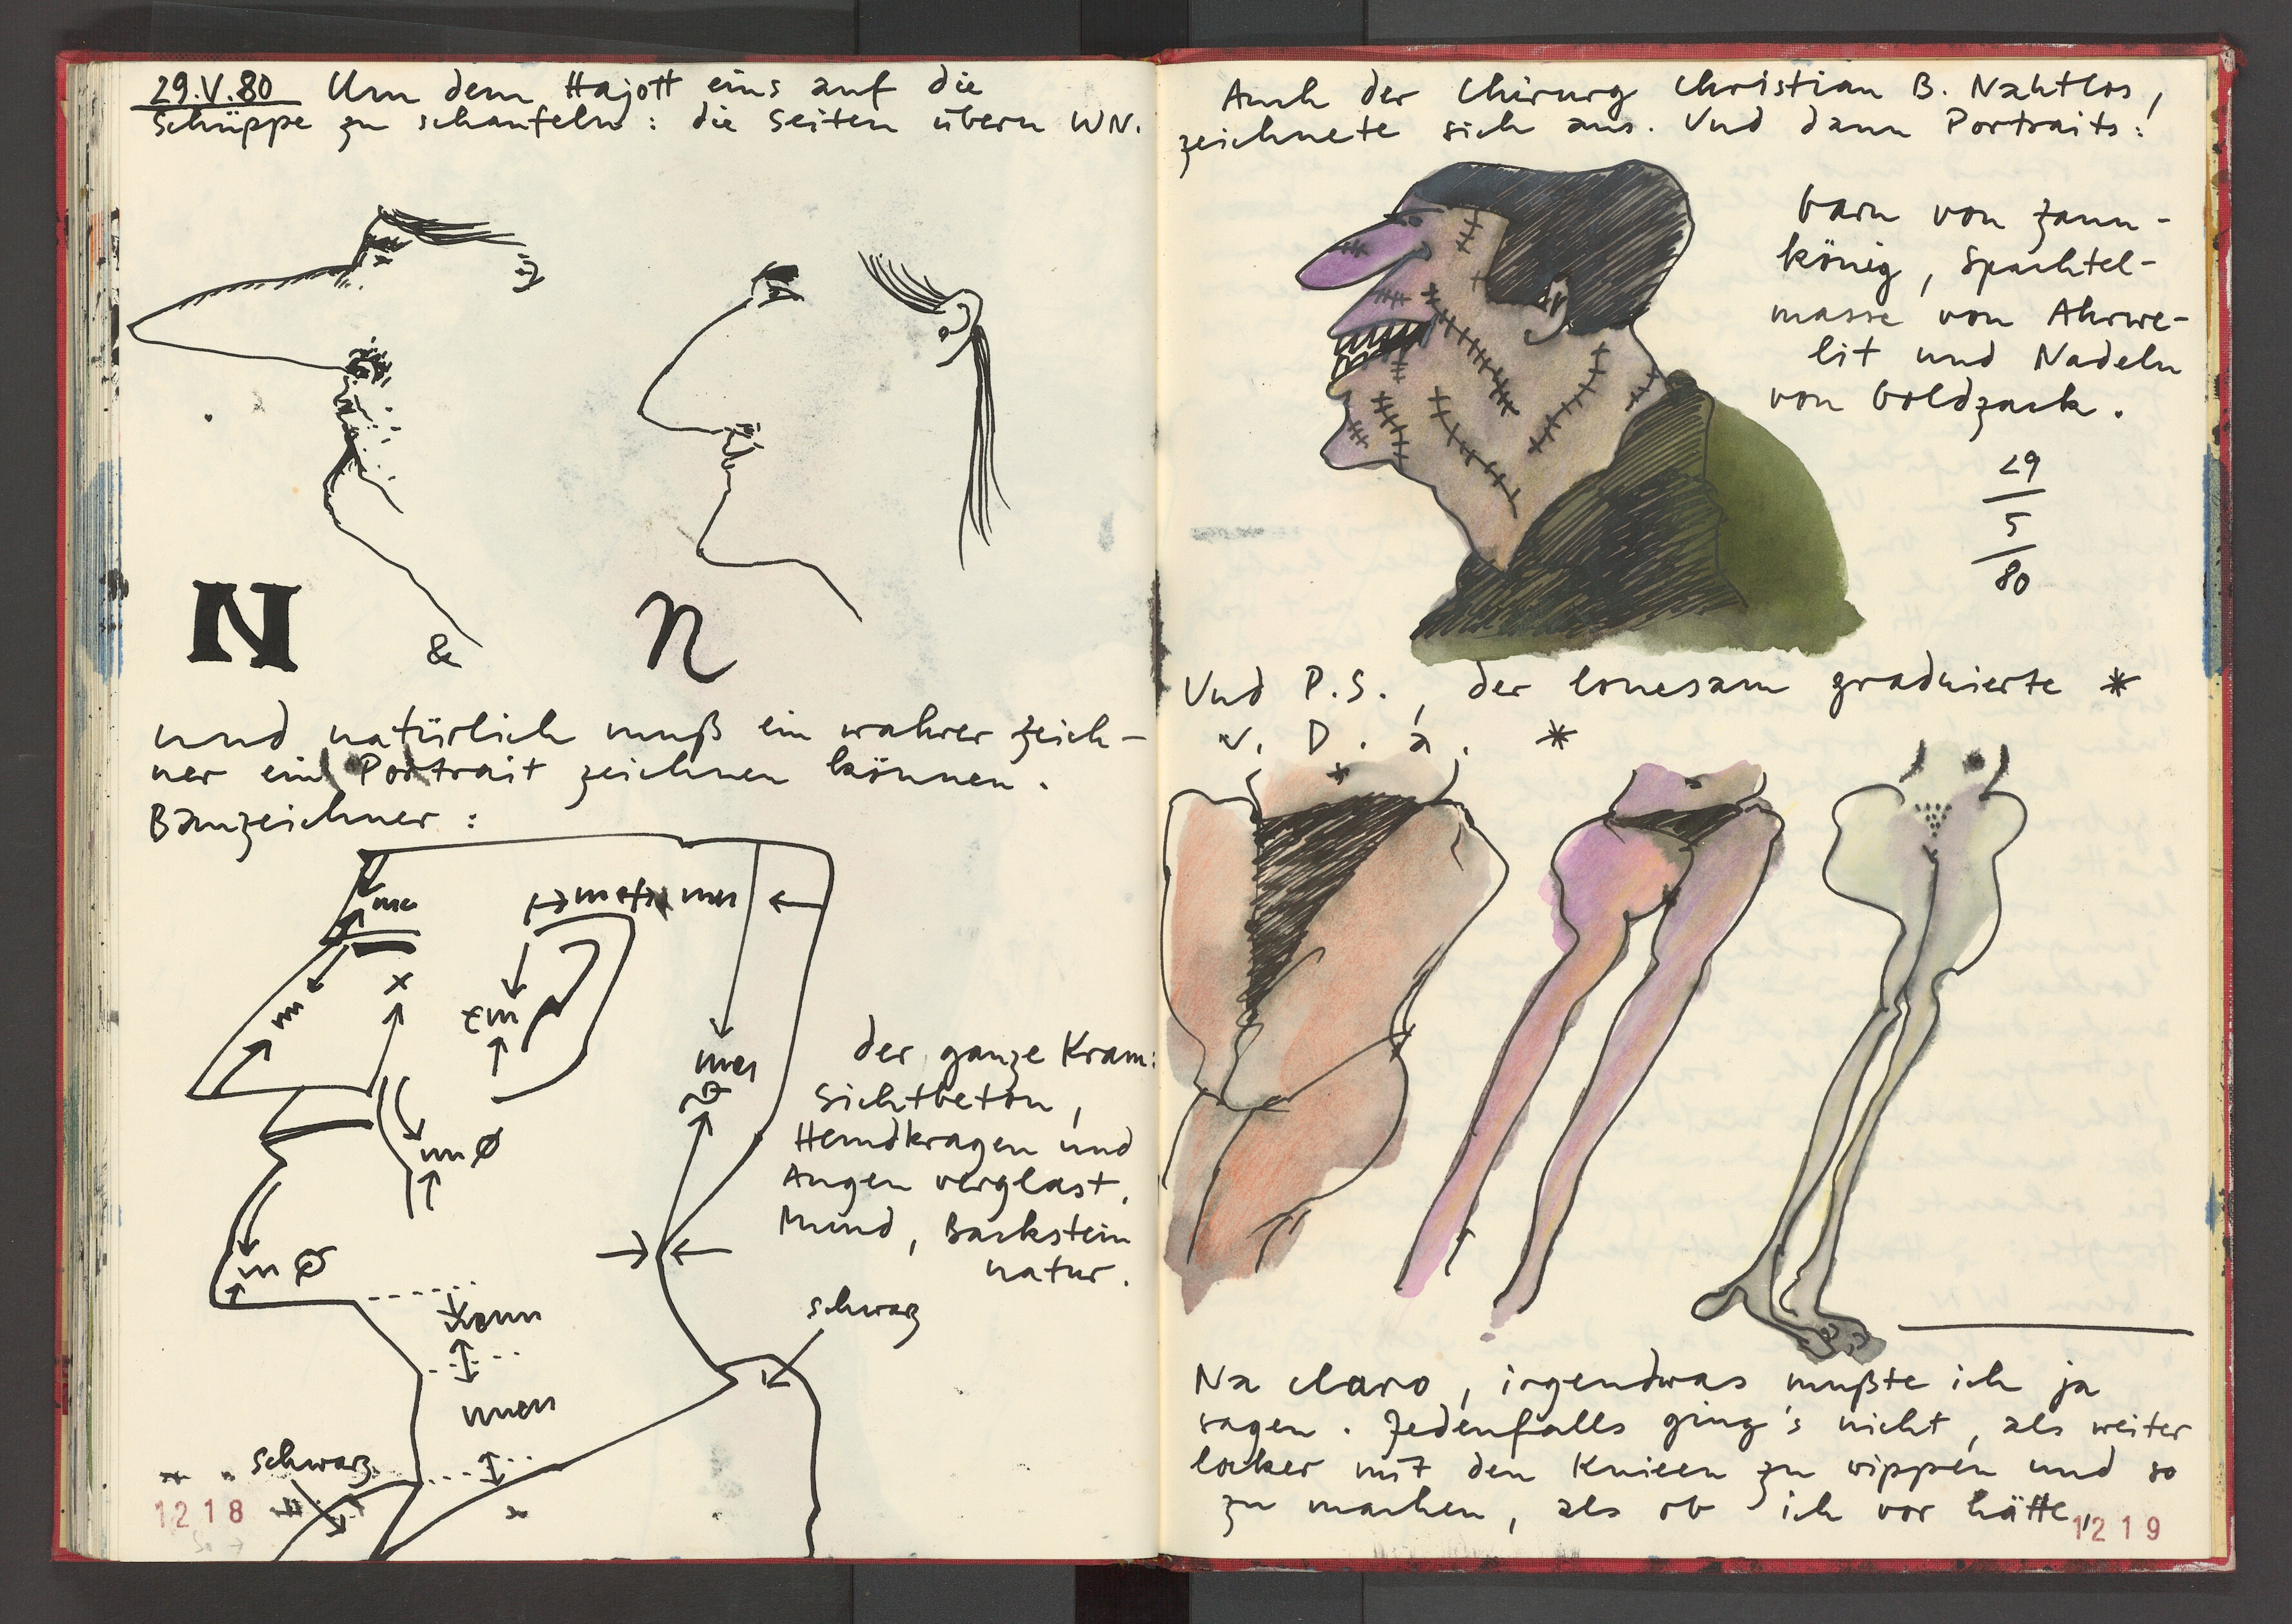 29.V.80 Um dem Hajott eins auf die
Schüppe zu schaufeln: die Seiten übern WN.
N & n
und natürlich muß ein wahrer Zeich-
ner ein Portrait zeichnen können.
Bauzeichner:
x
m
m Ø
m Ø
der ganze Kram:
Sichtbeton,
Hemdkragen und
Augen verglast.
Mund, Backstein
natur.
schwarz
schwarz
1218
Auch der Chirurg Christian B. Nahtlos,
zeichnete sich aus. Und dann Portraits:
Garn von Zaun-
könig, Spachtel-
masse von Ahrwe-
lit und Nadeln
von Goldzack.
29
5
80
Und P.S., der lonesam graduierte *
v. D. a. *
Na claro, irgendwas mußte ich ja
sagen. Jedenfalls ging's nicht, als weiter
locker mit den Knieen zu wippen und so
zu machen, als ob ich vor hätte,
1219